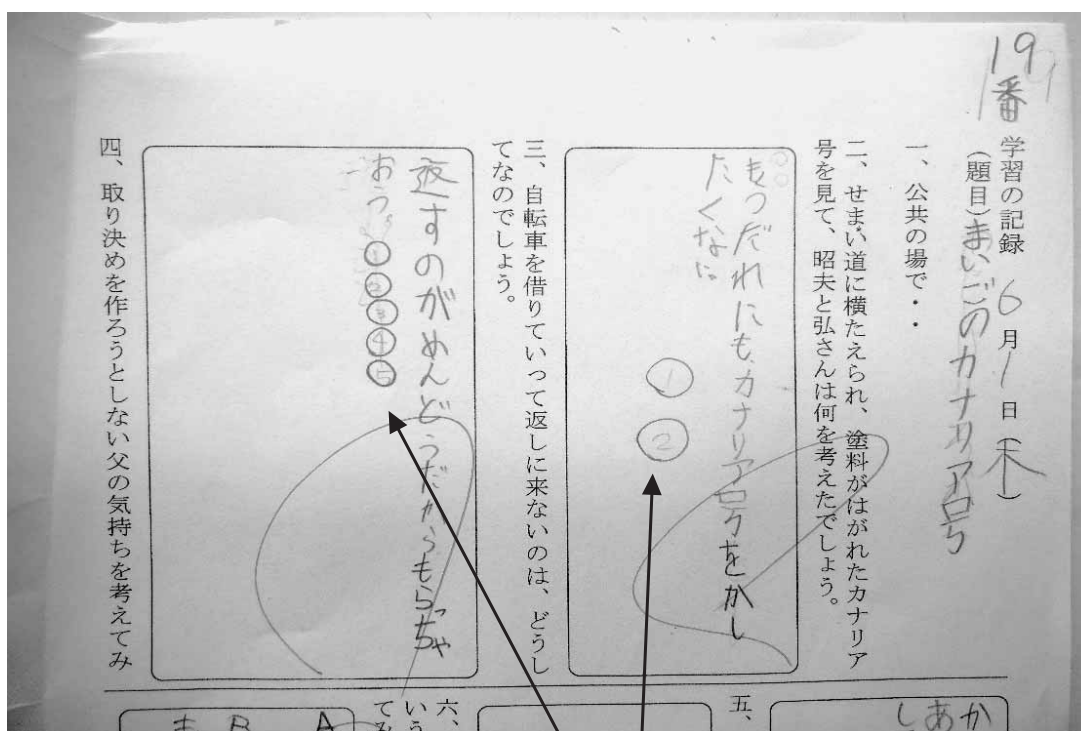 19番
学習の記録 6月1日(木)
(題目)まいごのカナリア号
一、公共の場で・・
二、せまい道に横たえられ、塗料がはがれたカナリア
号を見て、昭夫と弘さんは何を考えたでしょう。
もうだれにも、カナリア号をかし
たくない。
① ②
三、自転車を借りていって返しに来ないのは、どうし
てなのでしょう。
返すのがめんどうだからもらっちゃ
おう。①②③④⑤
四、取り決めを作ろうとしない父の気持ちを考えてみ
か
あ
し
五、
六、
いう
てみ
A
B